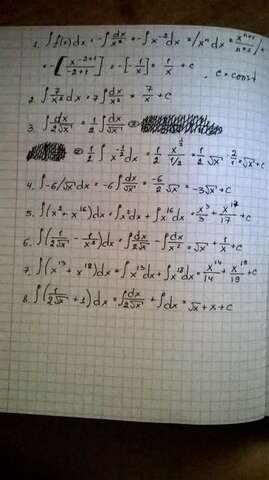 1. ∫f(x)dx = -∫dx/x² = -∫x⁻²dx = /xⁿdx = xⁿ⁺¹/n+1 /=
= -[x⁻²⁺¹/-2+1] = -[-1/x] = 1/x + c , c = const
2. ∫7/x² dx = 7∫dx/x² = 7/x + c
3. ∫dx/2√x = 1/2 ∫dx/√x =
= 1/2 ∫-x^½ dx = 1/2 x^½/1/2 = 1/2 √x · 2/1 = √x + c
4. ∫-6/√x dx = -6∫dx/√x = -6/2 √x = -3√x + c
5. ∫(x² + x¹⁶)dx = ∫x²dx + ∫x¹⁶dx = x³/3 + x¹⁷/17 + c
6. ∫(1/2√x - 1/x²)dx = ∫dx/2√x - ∫dx/x² = √x + 1/x + c
7. ∫(x¹³ + x¹⁸)dx = ∫x¹³dx + ∫x¹⁸dx = x¹⁴/14 + x¹⁹/19 + c
8. ∫(1/2√x + 1)dx = ∫dx/2√x + ∫dx = √x + x + c